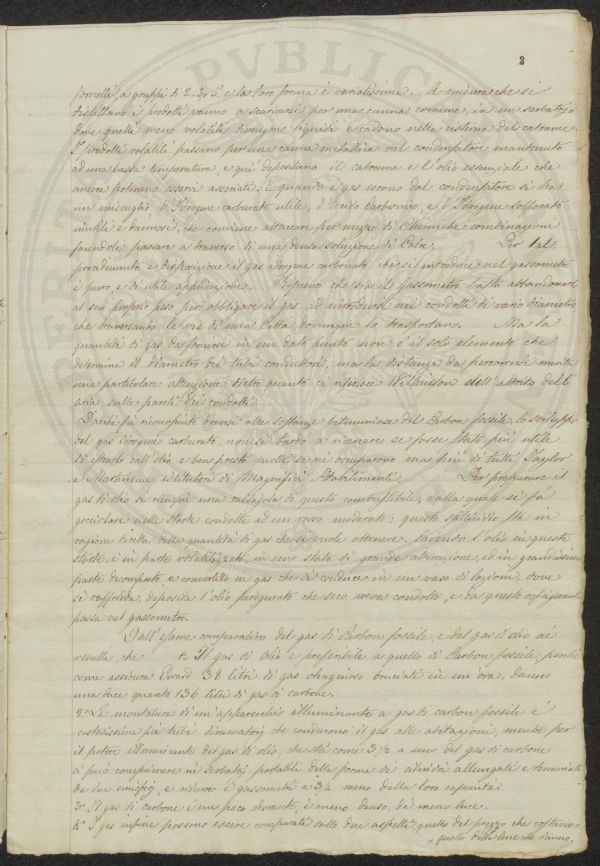 3
fornelli, a gruppi di 2. 3. 5. e la loro forma è variatissima. A misura che si
distillano i prodotti vanno a scaricarsi per una canna comune, in un serbatojo
dove quelli meno volatili divengono liquidi e cadono nella cisterna del catrame.
I prodotti volatili passano per una canna metallica nel condensatore mantenuto
ad una bassa temperatura, e quì depositano il catrame e l'olio essenziale che
ancora potevano esservi associati. E quando i gas escono dal condensatore si ha
un miscuglio, d'Idrogene carburato utile, d'Acido carbonico, e d'Idrogene solforato
inutili e dannosi, che conviene attaccare per mezzo di Chimiche combinazioni
facendoli passare a traverso di una densa soluzione di Calce. Per tal
procedimento e disposizione il gas idrogene carbonato che si introduce nel gassometro
è puro, e di utile applicazione. Ripieno che sia il gassometro basta abbandonarlo
al suo proprio peso per obbligare il gas ad introdursi nei condotti di vario diametro
che traversando le vie di una Città dovunque lo trasportano. Ma la
quantità di gas da fornirsi in un dato punto non è il solo elemento che
determina il diametro dei tubi conduttori, ma la distanza da percorrersi merita
una particolare attenzione dietro quanto ci riferisce Wilkinson dell'attrito dell'
aria sulle pareti dei condotti.
Dacchè fù riconosciuto doversi alle sostanze bituminose del Carbon fossile lo sviluppo
del gas idrogene carburato, non si tardò a ricercare se fosse stato più utile
di estrarlo dall'olio, e ben presto molti se ne occuparono ma più di tutti Taylor
e Martineau istitutori di Magnifici Stabilimenti. Per preparare il
gas di olio si riempie una caldajola di questo combustibile, dalla quale si fa
gocciolare nelle storte condotte ad un rosso moderato: questo stillicidio stà in
ragione diretta della quantità di gas che si vuole ottenere. Cadendo l'olio in queste
storte, è in parte volatilizzato, in uno stato di grande alterazione, ed in grandissima
parte decomposto, e convertito in gas che si conduce in un vaso di lozione, dove
si raffredda, deposita l'olio che seco aveva condotto, e da questo refrigerante
passa nel gassometro.
Dall'esame comparativo del gas di Carbon fossile, e del gas d'olio ne
resulta, che 1°. Il gas di Olio è preferibile a quello di Carbon fossile, poichè
come assicura 38 litri di gas oleaginoso bruciati in un'ora, danno
una luce quanto 136 litri di gas di carbone.
2°. La montatura di un'apparecchio illuminante a gas di carbon fossile è
costosissima pei tubi diramatorj che conducono il gas alle abitazioni, mentre per
il potere illuminante del gas di olio, che stà come 3½ a uno del gas di carbone
si può comprimere in serbatoj portatili della forma di cilindri allungati e terminati
da due emisfej, e ridurre i gassometri a 3/4 meno della loro capacità.
3°. Il gas di carbone è un poco odorante, è meno denso, dà meno luce.
4°. I gas infine possono essere comparati sotto due aspetti, quello del prezzo che costano =
= quello della luce che danno.